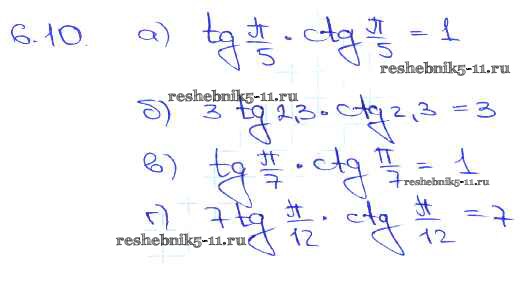 6.10. а) tg π/5 · ctg π/5 = 1
reshebnik5-11.ru
reshebnik5-11.ru
б) 3 tg 2,3 · ctg 2,3 = 3
в) tg π/7 · ctg π/7 = 1
reshebnik5-11.ru
г) 7 tg π/12 · ctg π/12 = 7
reshebnik5-11.ru